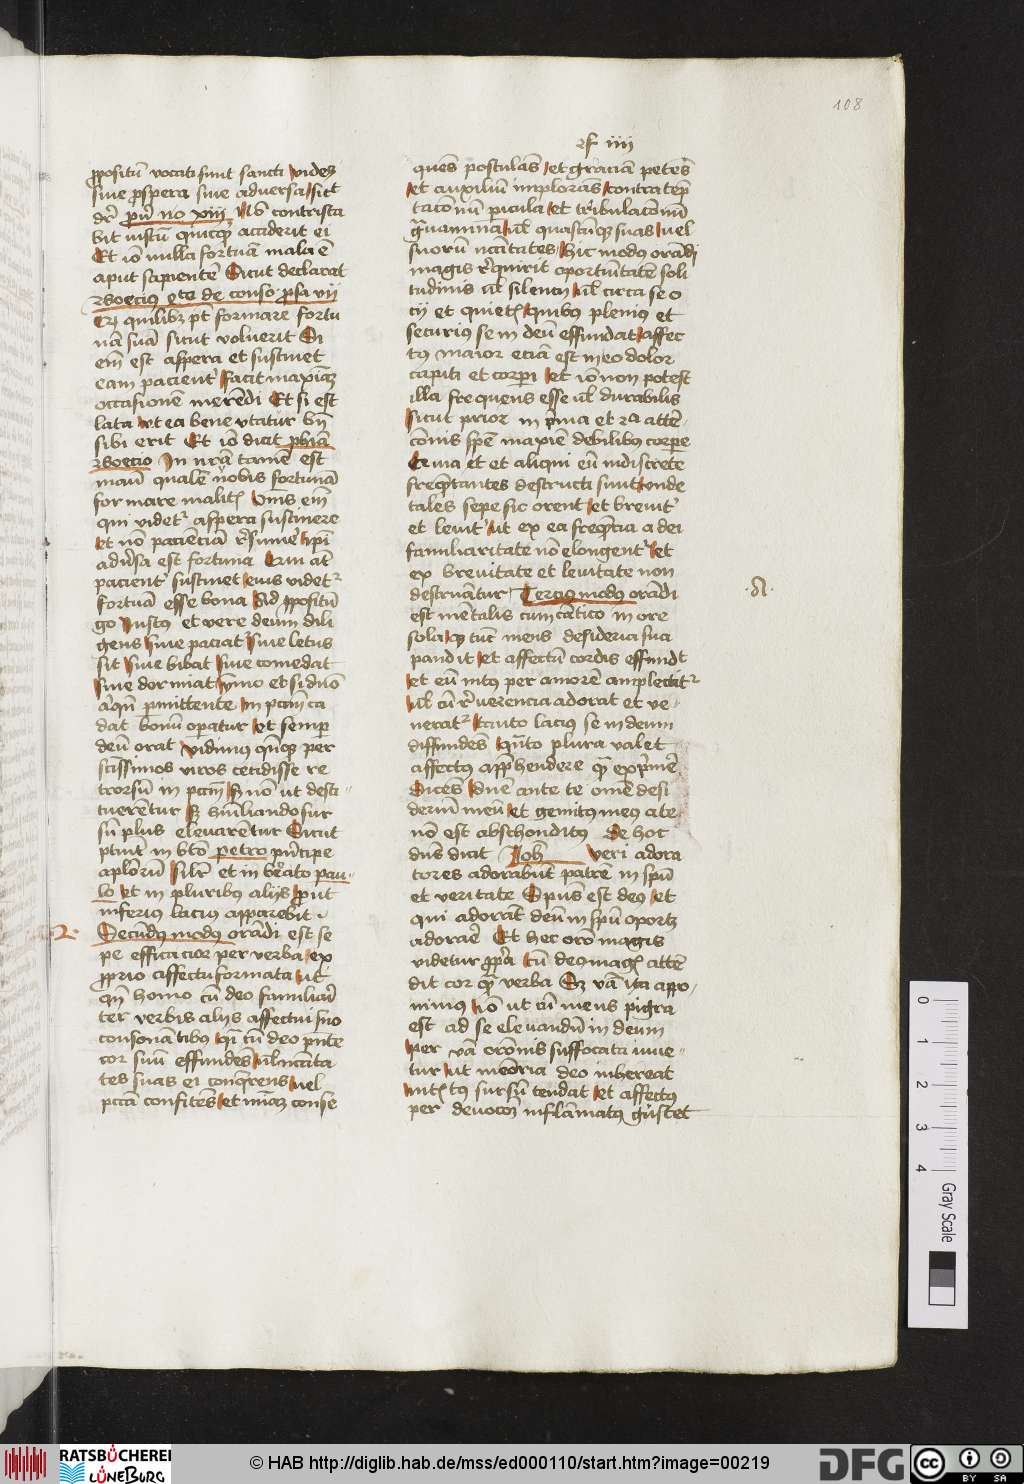 108
rf iiij
ꝓpositū vocati sunt sancti vides
siue ꝓspera siue aduersa sitt
dr̄ ꝓuͥ no xiij Nō contrista
bit iustū quicqͣ acciderit ei
Et iō nulla fortuā mala ē
aput sapientē Sicut declarat
Boecius de conso prosa vij
quilibꝫ pt̄ formare fortu
nā suā sicut voluerit Si
em̄ est aspera et sustinet
eam pacient᷑ facit maxīaꝫ
occasionē merēdi Et si est
lata ut ea bene vtatur bn̄
sibi erit Et iō dicit phīa
Boecio In nrā tamē est
manū qualē vobis fortunā
formare malitꝭ Vnus em̄
qui videt᷑ aspera sustinere
et nō pacienciā
aduͥsa est fortuna Cum at̄
pacient᷑ sustinet eius videt᷑
fortuā esse bona Ad ꝓpositū
go Iustus et vere deum dili
gens siue paciat᷑ siue letus
sit siue bibat siue comedat
siue dormiat ymo et si dn̄o
pmittente in pctm̄ ca
dat bonū operatur et semꝑ
deū orat vidimus per
scissimos viros cecidisse re
trorsū in pctm̄ Sꝫ nō ut desti-
tuerētur Sꝫ humiliando sur
sū plus eleuarētur Sicut
ptuit in bt̄o petro prīcipe
aplorū Silr̄ et in bēato pau-
lo et in pluribus alijs prout
inferius lacius apparebit
2. Secūdus modus orādi est se
pe efficacior per verba ex
ꝓprio affectu formata utꝭ
qn̄ homo cū deo familiarͥ
ter verbis alijs affectui suo
consonātibus qͥ cū deo pn̄te
cor suū effundes vl' nc̄cita
tes suas ei conqrens uel
pctā confitēs et mīaꝫ conse
quēs postulās et graciā petēs
et auxiliū implorās contra tēp
tacōnū picula et tribulacōnū
grauamina vl' quascūqꝫ suas uel
suorū nc̄citates Hic modus orādi
magis requirit oportūitatē soli
tudinis vl' silencij vl' circa se o
cij et quietꝭ quibꝰ plenius et
securius se in deū effundat affec
tꝰ maior eciā est in eo dolor
capitis et corꝑi et iō non potest
illa frequens esse vl' durabilis
sicut prior in prima et 2a attē-
cōnis spē maxīe debilibus corꝑe
Ceruia et et aliqui eū indiscrete
freqūtantes destructi sunt Unde
tales sepe sic orent et breuit᷑
et leuit᷑ ut ex ea freqūtia a dei
familiaritate nō elongent᷑ et
ex breuitate et leuitate non
destruātur Tercius modus orādi
·3·
est mētalis cum cātico in ore
sola cū tūc mens desideria sua
pandit et affectū cordis effundt
et eū intꝰ per amorē amplectit᷑
vl' cū reuerencia adorat et ve-
nerat᷑ tanto lacius se in deum
diffundēs qn̄to plura valet
affectus app̄hendere qͣ exprimē
Dicēs dn̄e ante te omē desi
deriū meū et gemitꝰ meꝰ a te
nō est absconditꝰ de hoc
dn̄s dicit Joh veri adora
tores adorabunt patrē in spū
et veritate Spus est deꝰ et
qui adorāt deū in spū oportꝫ
adorare Et hec orō magis
videtur ꝓpa cū deꝰ magꝭ attē
dit cor qͣ verba Sꝫ vā ita appo-
nimꝰ iō ut cū mens pigra
est ad se eleuandū in deum
per vā orōnis suffocata iuue-
tur ut meōria deo inhereat
intꝭtus sursū tendat et affectꝰ
per deuocōꝫ inflāmatus gustet
0 1 2 3 4
Gray Scale
RATSBÜCHEREI LÜNEBURG
© HAB http://diglib.hab.de/mss/ed000110/start.htm?image=00219
DFG
cc BY SA